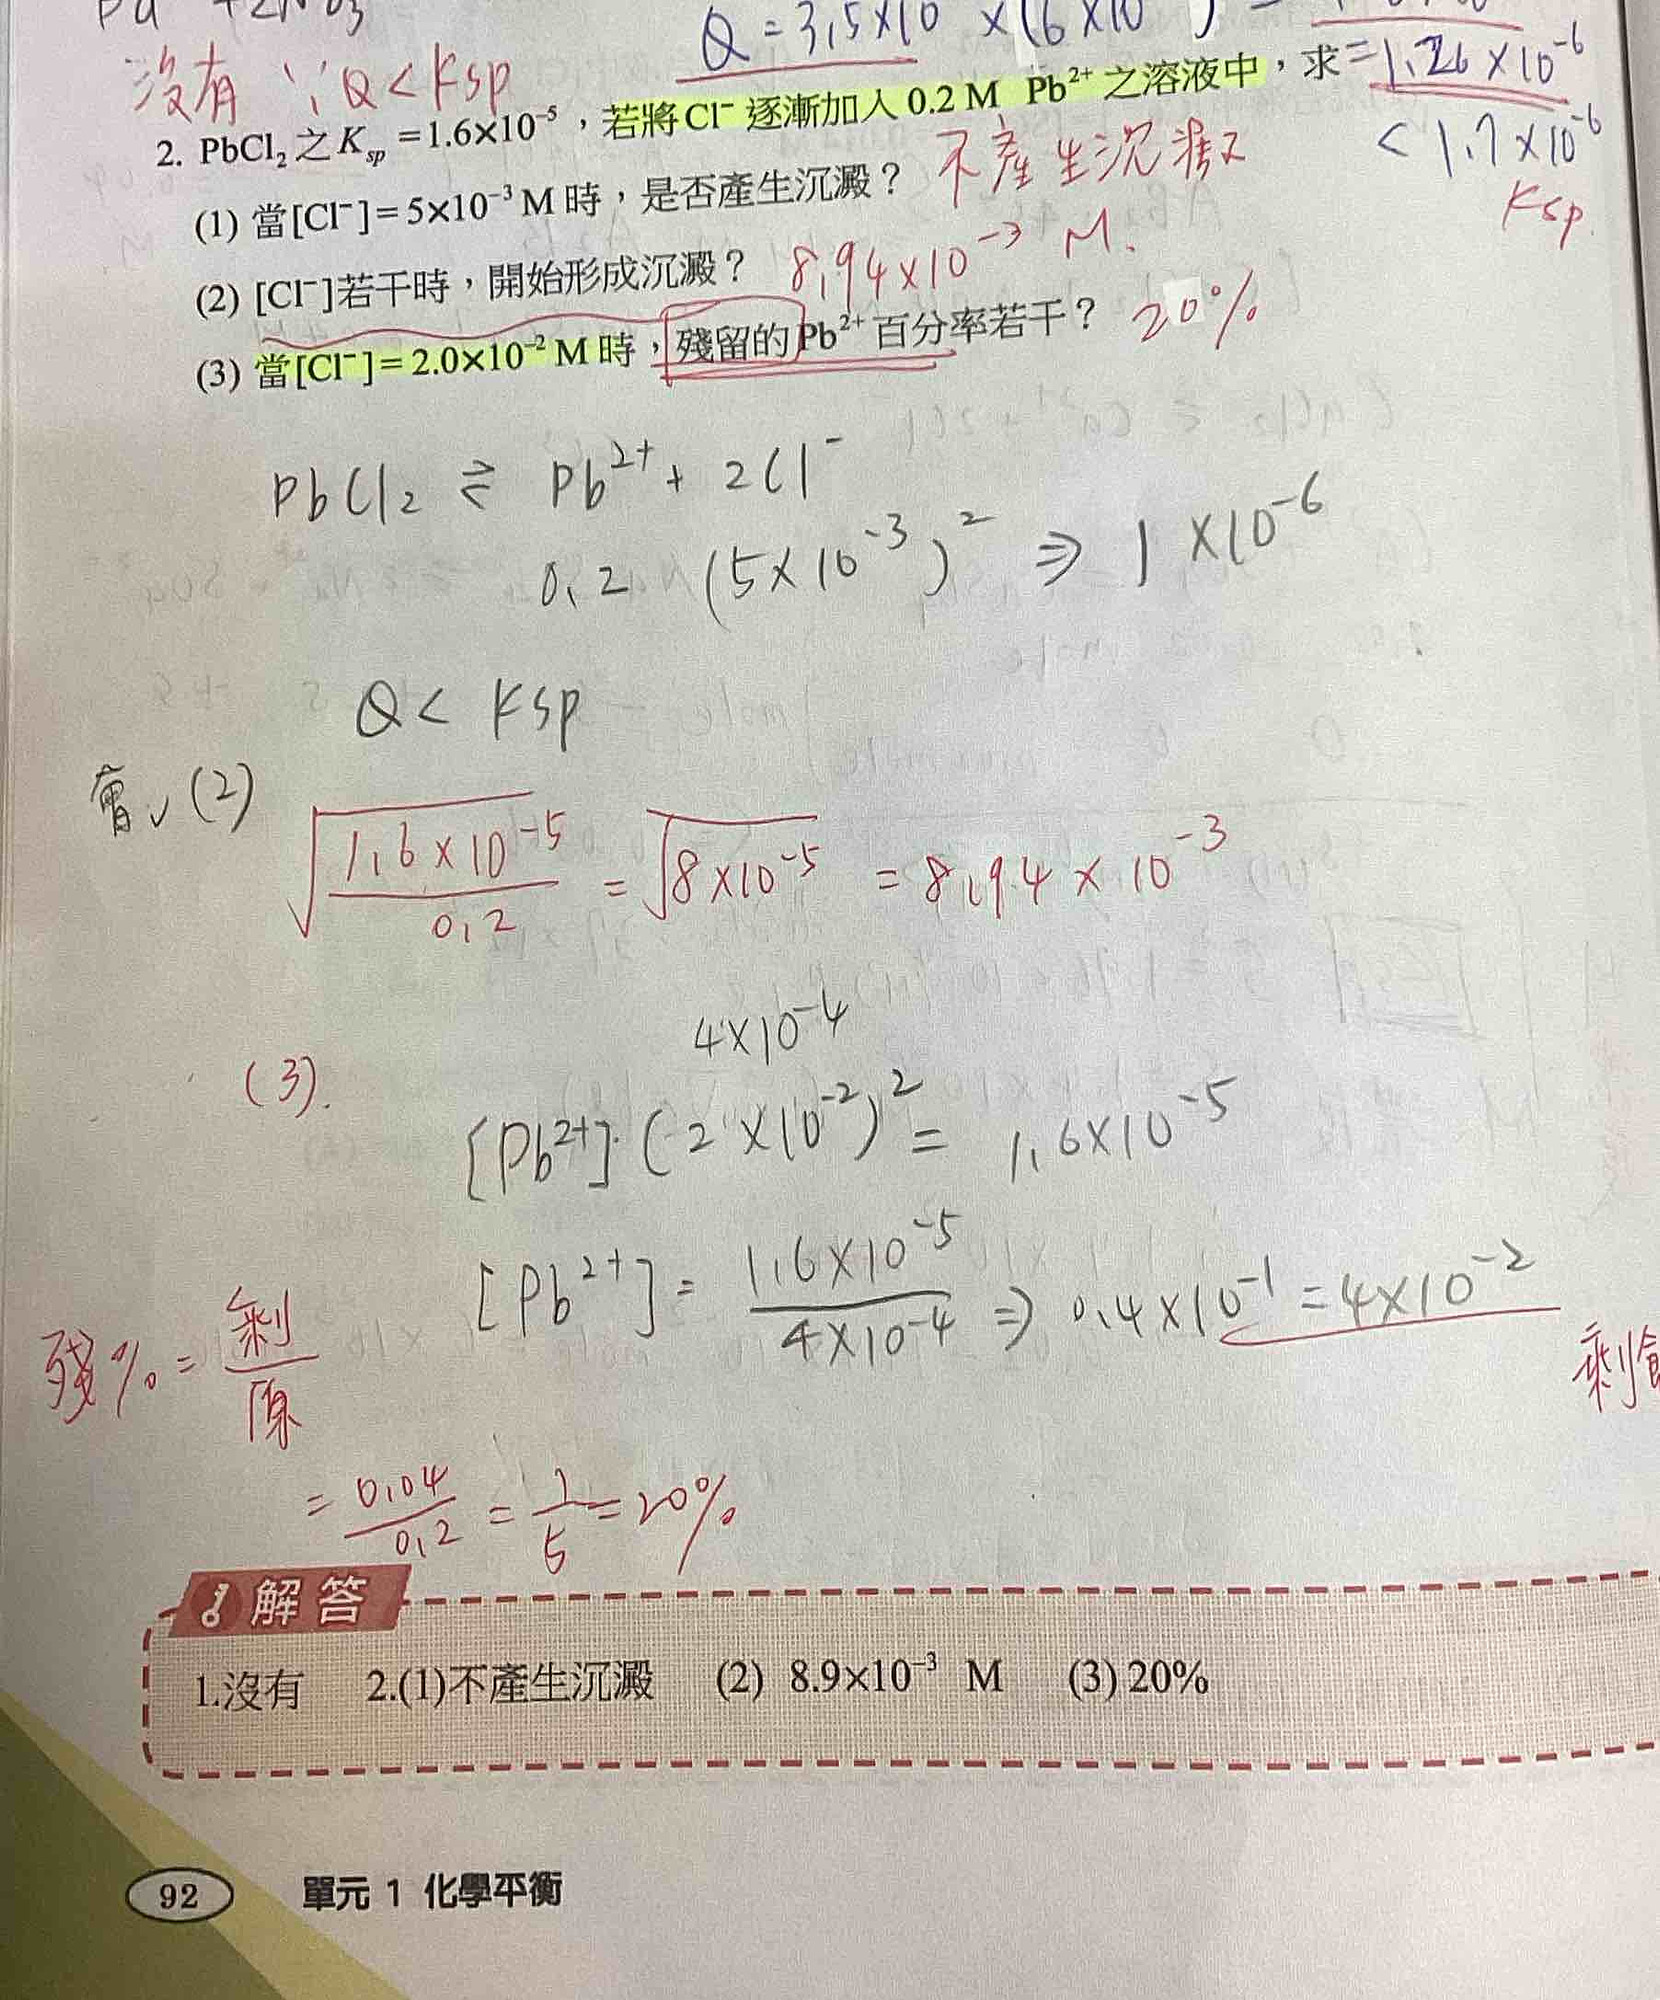 +2NO3
Q = 3.5×10 ×(6×10 )
沒有 ∵Q<Ksp
= 1.26×10⁻⁶
2. PbCl₂之Ksp=1.6×10⁻⁵,若將Cl⁻逐漸加入0.2 M Pb²⁺之溶液中,求
< 1.7×10⁻⁶
Ksp.
(1) 當[Cl⁻]=5×10⁻³ M時,是否產生沉澱? 不產生沉澱
(2) [Cl⁻]若干時,開始形成沉澱? 8.94×10⁻³ M.
(3) 當[Cl⁻]=2.0×10⁻² M時,殘留的Pb²⁺百分率若干? 20%
PbCl₂ ⇌ Pb²⁺ + 2Cl⁻
0.2 (5×10⁻³)² ⇒ 1×10⁻⁶
Q < Ksp
會✓(2)
√(1.6×10⁻⁵/0.2) = √(8×10⁻⁵) = 8.94×10⁻³
4×10⁻⁴
(3).
[Pb²⁺].(2×10⁻²)² = 1.6×10⁻⁵
[Pb²⁺] = 1.6×10⁻⁵/4×10⁻⁴ ⇒ 0.4×10⁻¹ = 4×10⁻²
剩餘
殘% = 剩/原
= 0.04/0.2 = 1/5 = 20%
解答
1.沒有 2.(1)不產生沉澱 (2) 8.9×10⁻³ M (3) 20%
92 單元 1 化學平衡